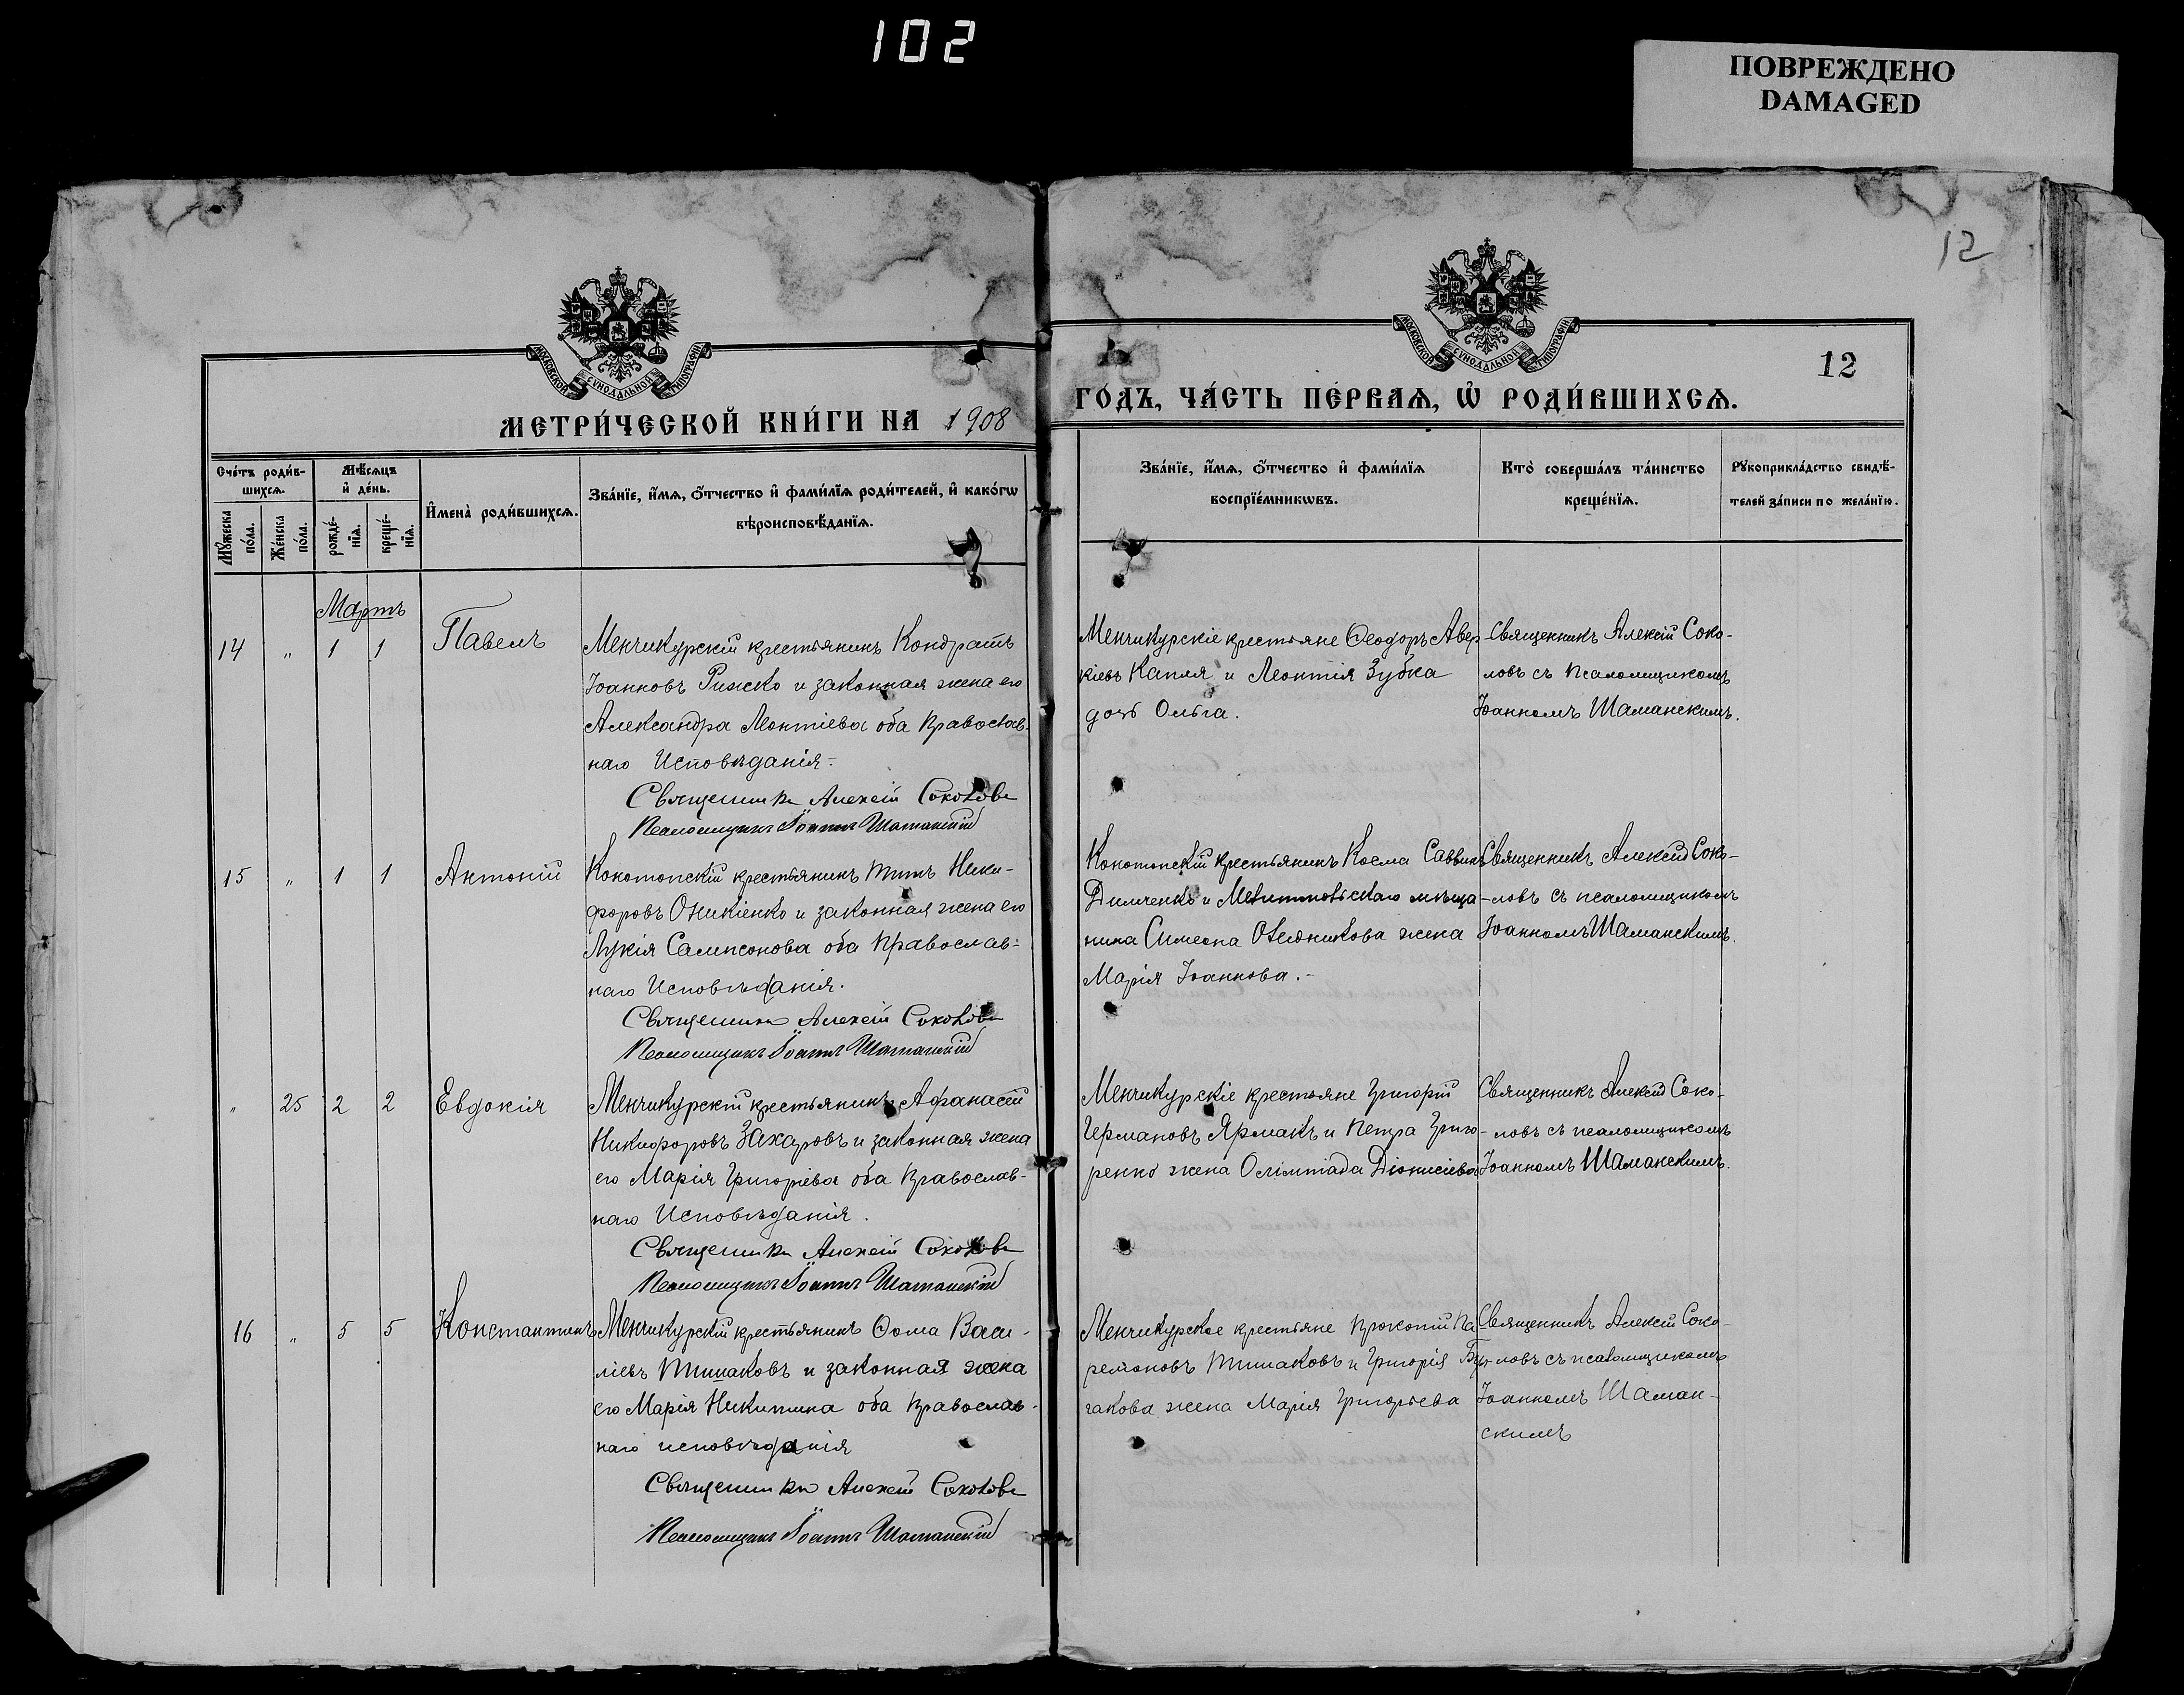 102
ПОВРЕЖДЕНО
DAMAGED
12
МОСКОВСКОЙ СѴНОДАЛЬНОЙ ТИПОГРАФІИ
МОСКОВСКОЙ СѴНОДАЛЬНОЙ ТИПОГРАФІИ
12
МЕТРИ́ЧЕСКОЙ КНИ́ГИ НА 1908
ГО́ДЪ, ЧА́СТЬ ПЕ́РВАѦ, Ѡ҆ РОДИ́ВШИХСѦ.
Сче́тъ роди́в-
шихсѧ.
Мѣ́сѧцъ
и҆ де́нь.
И҆мена̀ роди́вшихсѧ.
Зва́нїе, и҆́мѧ, ѻ҆́тчество и҆ фами́лїѧ роди́телей, и҆ како́гѡ
вѣроисповѣ́данїѧ.
Мꙋ́жеска
по́ла.
Же́нска
по́ла.
рожде́-
нїѧ.
креще́-
нїѧ.
Зва́нїе, и҆́мѧ, ѻ҆́тчество и҆ фами́лїѧ
воспрїе́мникѡвъ.
Кто̀ соверша́лъ та́инство
креще́нїѧ.
Рꙋкоприкла́дство свидѣ́-
телей за́писи по жела́нїю.
Мартъ
14 „ 1 1 Павелъ
Менчикурскій крестьянинъ Кондратъ
Іоанновъ Рижско и законная жена его
Александра Леонтіева оба православ-
наго Исповѣданія.
Священникъ Алексій Соколовъ
Псаломщикъ Іоаннъ Шаманскій
Менчикурскіе крестьяне Ѳеодоръ Авер-
кіевъ Капля и Леонтія Зубка
дочь Ольга.
Священникъ Алексій Соко-
ловъ съ псаломщикомъ
Іоанномъ Шаманскимъ.
15 „ 1 1 Антоній
Конотопскій крестьянинъ Титъ Ники-
форовъ Оникіенко и законная жена его
Лукія Сампсонова оба Православ-
наго Исповѣданія.
Священникъ Алексій Соколовъ
Псаломщикъ Іоаннъ Шаманскій
Конотопскій крестьянинъ Косма Саввинъ
Димченко и Мелитопольскаго мѣща-
нина Симеона жена
Марія Іоаннова.-
Священникъ Алексій Соко-
ловъ съ псаломщикомъ
Іоанномъ Шаманскимъ.
„ 25 2 2 Евдокія
Менчикурскій крестьянинъ Афанасій
Никифоровъ Захаровъ и законная жена
его Марія Григоріева оба православ-
наго Исповѣданія.
Священникъ Алексій Соколовъ
Псаломщикъ Іоаннъ Шаманскій
Менчикурскіе крестьяне Григорій
Германовъ Ярмакъ и Петра Григо-
ренко жена Олімпіада Діонисіева
Священникъ Алексій Соко-
ловъ съ псаломщикомъ
Іоанномъ Шаманскимъ.
16 „ 5 5 Константинъ
Менчикурскій крестьянинъ Ѳома Васи-
ліевъ Тишаковъ и законная жена
его Марія Никитина оба православ-
наго исповѣданія
Священникъ Алексій Соколовъ
Псаломщикъ Іоаннъ Шаманскій
Менчикурскіе крестьяне Прокопій Па-
ремоновъ Тишаковъ и Григорія Бул-
гакова жена Марія Григорьева
Священникъ Алексій Соко-
ловъ съ псаломщикомъ
Іоанномъ Шаман-
скимъ